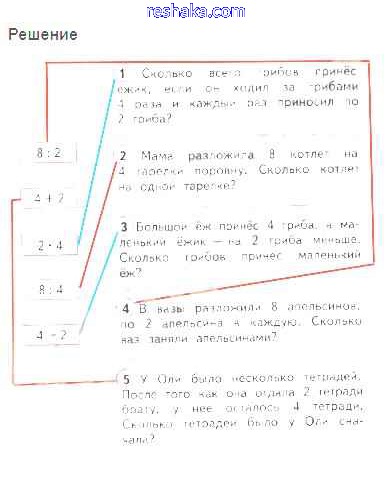 reshaka.com
Решение
1 Сколько всего грибов принёс
ёжик, если он ходил за грибами
4 раза и каждый раз приносил по
2 гриба?
8 : 2
2 Мама разложила 8 котлет на
4 тарелки поровну. Сколько котлет
на одной тарелке?
4 + 2
3 Большой ёж принёс 4 гриба, а ма-
ленький ёжик — на 2 гриба меньше.
Сколько грибов принёс маленький
ёж?
2 · 4
8 : 4
4 В вазы разложили 8 апельсинов,
по 2 апельсина в каждую. Сколько
ваз заняли апельсинами?
4 − 2
5 У Оли было несколько тетрадей.
После того как она отдала 2 тетради
брату, у неё осталось 4 тетради.
Сколько тетрадей было у Оли сна-
чала?